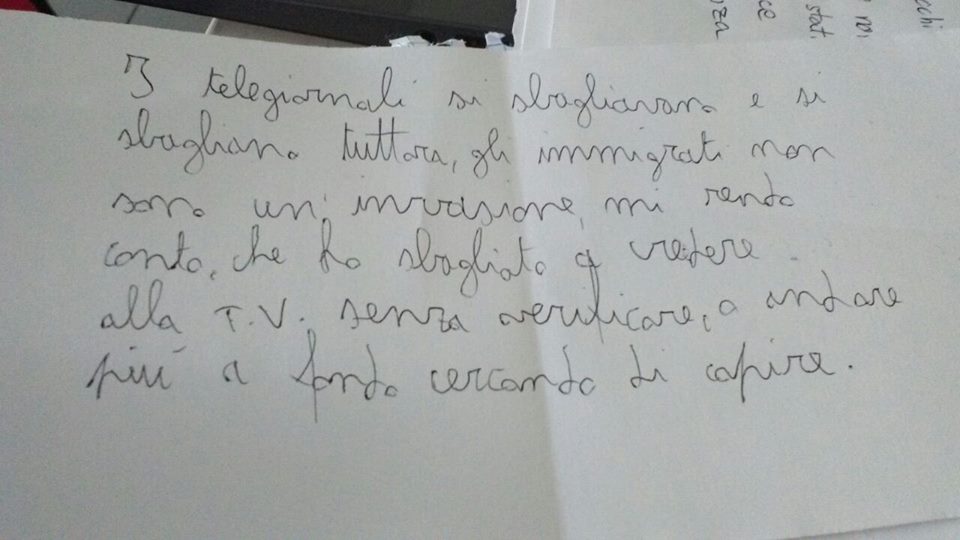 I telegiornali si sbagliavano e si
sbagliano tuttora, gli immigrati non
sono un invasione, mi rendo
conto, che ho sbagliato a credere
alla T.V. senza verificare, o andare
più a fondo cercando di capire.